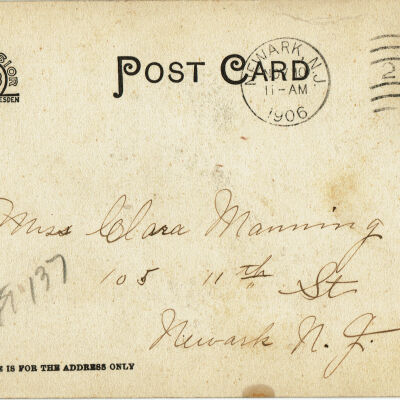 POST CARD
NEWARK, N.J.
11-AM
1906
2
Miss Clara Manning
105 11th St
Newark N. J.
137
E IS FOR THE ADDRESS ONLY